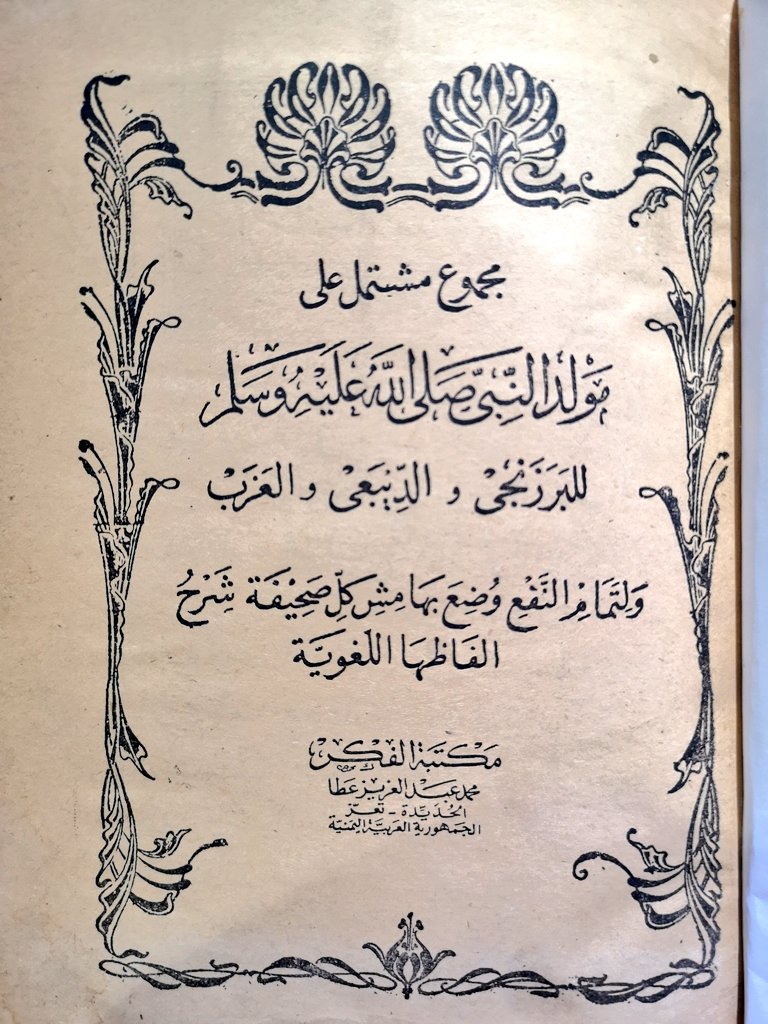 مجموع مشتمل على
مَولد النَّبِيّ صَلى اللَّهُ عَلَيْهِ وَسَلم
للبَرزَنجى و الدّيبَعى و العَزَبْ
وَلتَمَامِ النَّفْعِ وُضعَ بهَامِشِ كلِّ صَحِيْفَة شَرْحُ
الفَاظهَا اللّغَويَّة
مَكتَبة الفكر
محمد عبد العزيز عَطا
الحُدَيّدة - تعزّ
الجمهوريَة العَربيَة اليمنيّة